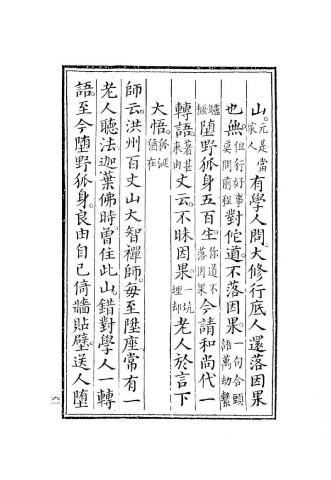 山。元是當家人有學人問。大修行底人還落因果
也無。但行好事莫問前程對佗道。不落因果。一句合頭語萬劫繫
驢橛墮野狐身五百生。你道不落因果今請和尚代一
轉語。著甚來由丈云。不昧因果。一坑埋却老人於言下
大悟。餘涎猶在
師云。洪州百丈山大智禪師。每至陞座。常有一
老人聽法迦葉佛時。曾住此山。錯對學人一轉
語。至今墮野狐身。良由自己倚牆貼壁。送人墮